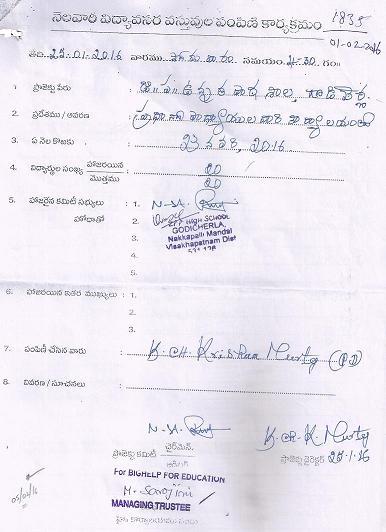 నెలవారీ విద్యావసర వస్తువుల పంపిణీ కార్యక్రమం 1835
01-02-2016
తేది..25.-01-.2016 వారము.......... సమయం..4.30..గం॥
1 ప్రాజెక్టు పేరు : జి.ప. ఉన్నత పాఠశాల, గొడిచెర్ల
2. ప్రదేశము / ఆవరణ : ప్రధానోపాధ్యాయుల వారి కార్యాలయం
3. ఏ నెల కొఱకు : జనవరి, 2016
4. విద్యార్థుల సంఖ్య హాజరయిన : 20
మొత్తము 20
5. హాజరైన కమిటీ సభ్యులు : 1. N.A.
హోదాతో 2.
Z.P. HIGH SCHOOL
3. GODICHERLA,
Nakkapalli Mandal
4. Visakhapatnam Dist
531 126
5.
6. హాజరయిన ఇతర ముఖ్యులు : 1.
2.
3.
7. పంపిణీ చేసిన వారు : K.CH. Krishna Murty (PD)
8. వివరణ / సూచనలు :
N.A. K.CH.K. Murty
ప్రాజెక్టు కమిటీ చైర్‌మేన్. ప్రాజెక్టు డైరెక్టర్ 25.1.16
For BIGHELP FOR EDUCATION
M. Sarojini
MANAGING TRUSTEE